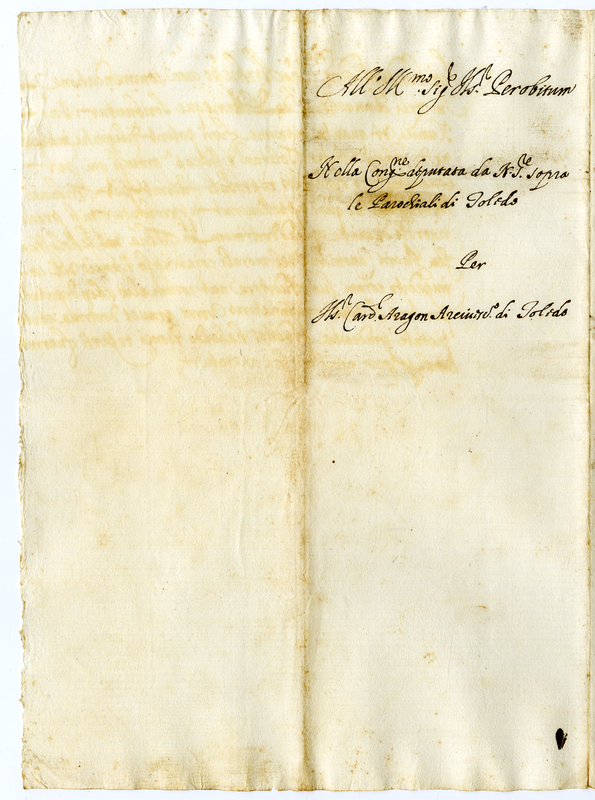 All' Ill.mo Sig.r Ms.r Perobitum
Nella Cong.ne deputata da N. S.re sopra
le Parochiali di Toledo
Per
Il S.r Card. Aragon Arcivesc.o di Toledo